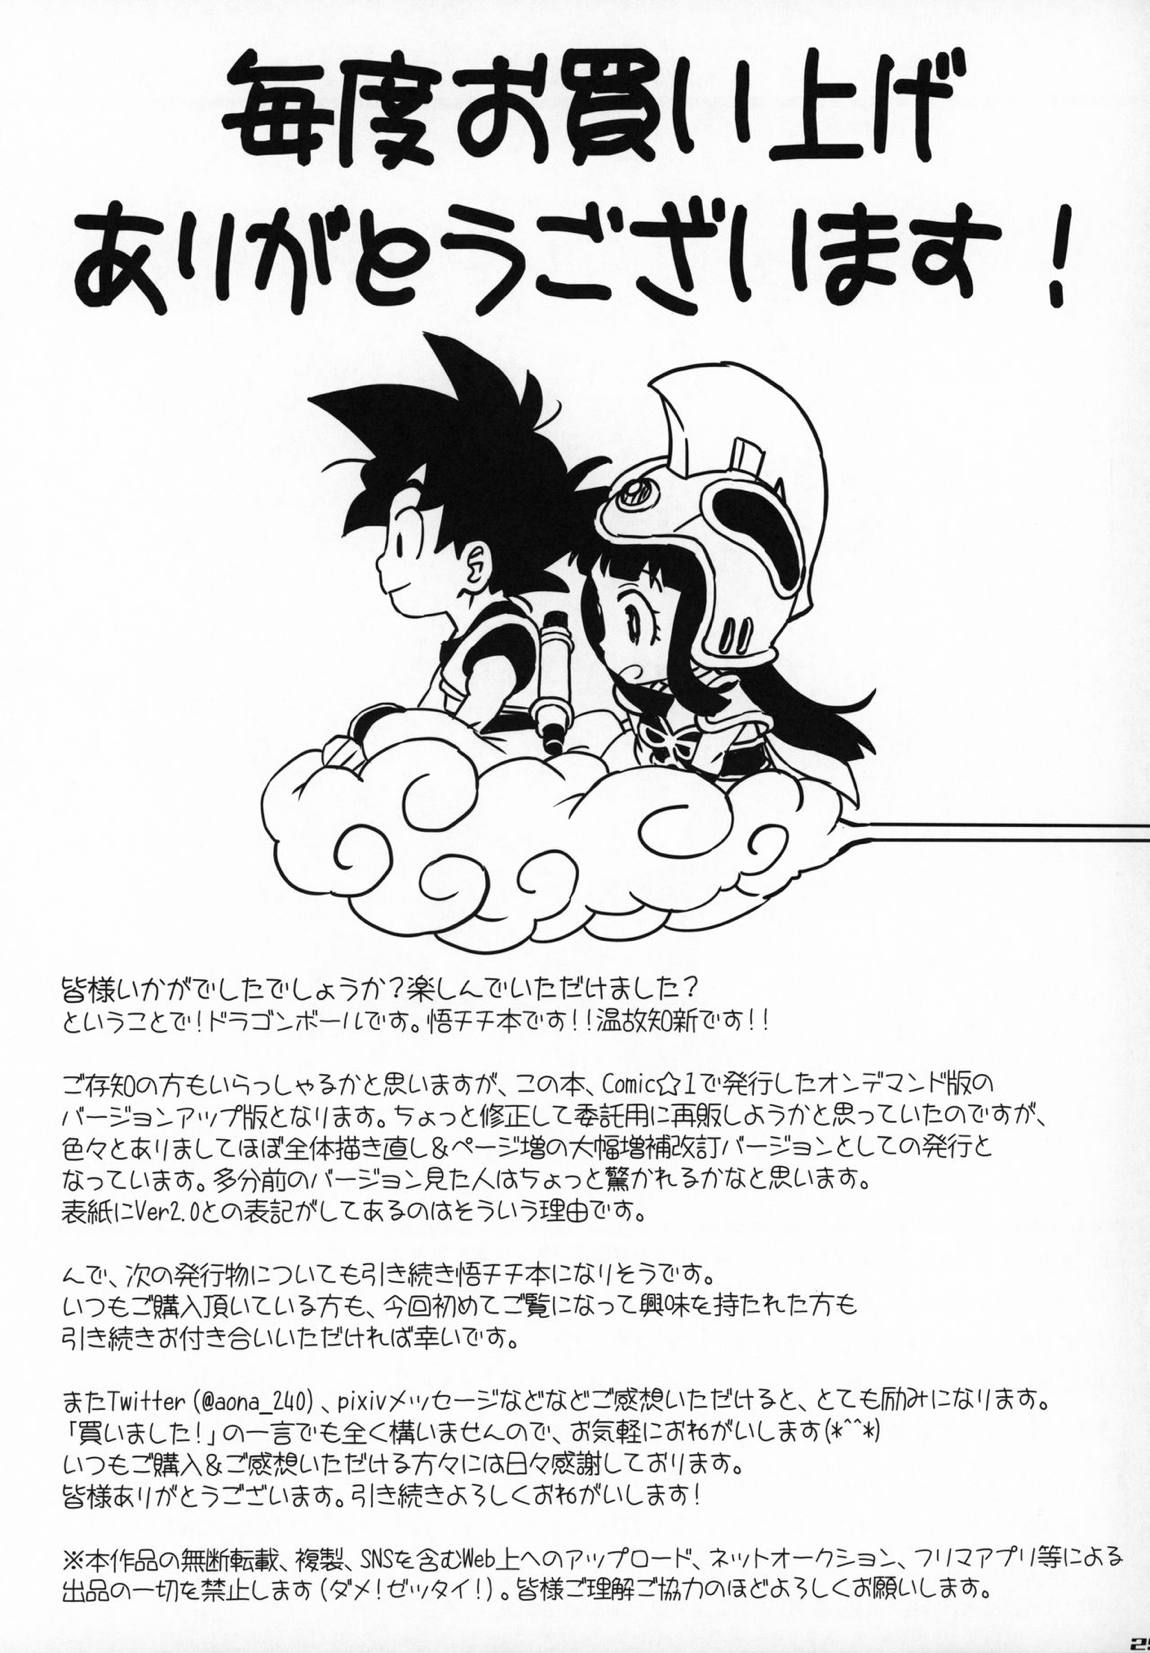 毎度お買い上げ
ありがとうございます！
皆様いかがでしたでしょうか？楽しんでいただけました？
ということで！ドラゴンボールです。悟チチ本です！！温故知新です！！
ご存知の方もいらっしゃるかと思いますが、この本、Comic☆1で発行したオンデマンド版の
バージョンアップ版となります。ちょっと修正して委託用に再販しようかと思っていたのですが、
色々とありましてほぼ全体描き直し＆ページ増の大幅増補改訂バージョンとしての発行と
なっています。多分前のバージョン見た人はちょっと驚かれるかなと思います。
表紙にVer2.0との表記がしてあるのはそういう理由です。
んで、次の発行物についても引き続き悟チチ本になりそうです。
いつもご購入頂いている方も、今回初めてご覧になって興味を持たれた方も
引き続きお付き合いいただければ幸いです。
またTwitter(@aona_240)、pixivメッセージなどなどご感想いただけると、とても励みになります。
「買いました！」の一言でも全く構いませんので、お気軽におねがいします(*^^*)
いつもご購入＆ご感想いただける方々には日々感謝しております。
皆様ありがとうございます。引き続きよろしくおねがいします！
※本作品の無断転載、複製、SNSを含むWeb上へのアップロード、ネットオークション、フリマアプリ等による
出品の一切を禁止します(ダメ！ゼッタイ！)。皆様ご理解ご協力のほどよろしくお願いします。